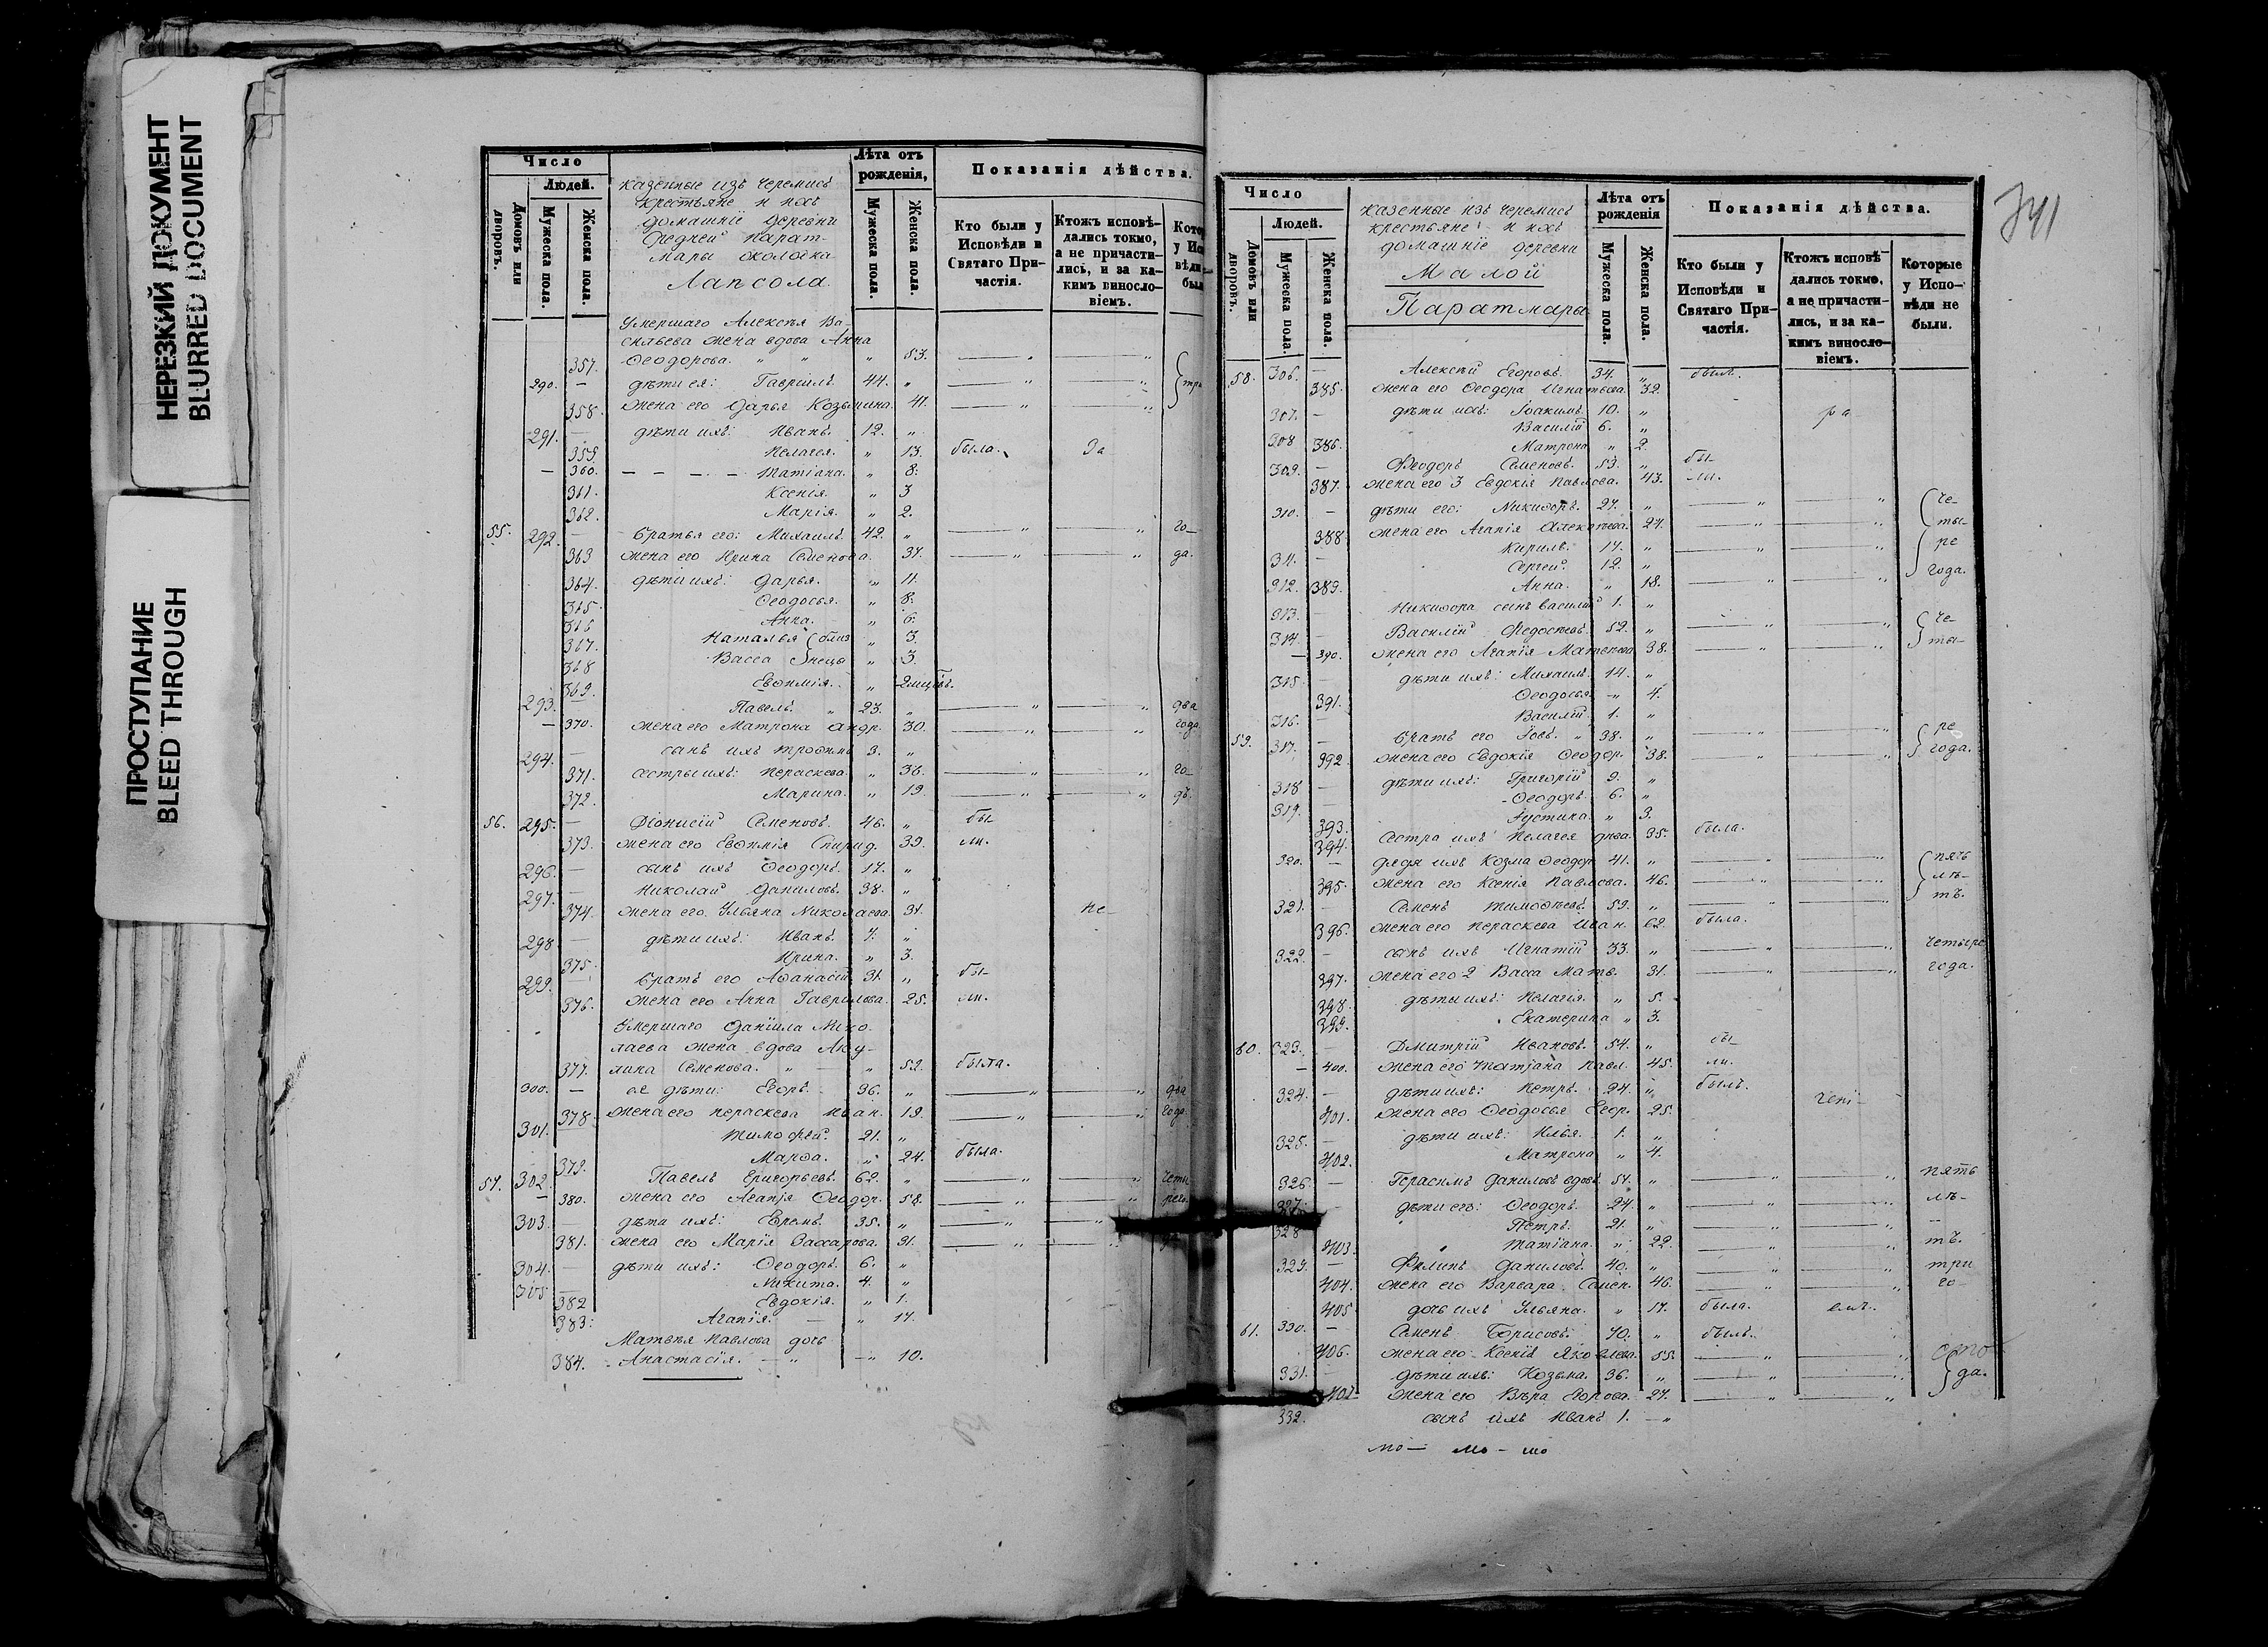 НЕРЕЗКИЙ ДОКУМЕНТ
BLURRED DOCUMENT
ПРОСТУПАНИЕ
BLEED THROUGH
Число
Людей.
Домовъ или дворовъ.
Мужеска пола.
Женска пола.
казенные изъ черемисъ
крестьяне и ихъ
домашніе деревни
Средней Парат-
мары околодка
Лапсола.
Лѣта отъ рожденія,
Мужеска пола.
Женска пола.
Показанія дѣйства.
Кто были у Исповѣди и Святаго При-частія.
Ктожъ исповѣ-дались токмо, а не причасти-лись, и за ка-кимъ виносло-віемъ.
Умершаго Алексѣя Ва-
сильева жена вдова Анна
357. Ѳеодорова. " " " 53.
290. — дѣти ея: Гавріилъ. 44. "
358. жена его Дарья Козьмина. " 41.
291. — дѣти ихъ: Иванъ. 12. "
359. Пелагея. " 13. была. За
— 360. — — — — Татіана. " 8.
361. Ксенія. " 3
362. Марія. " 2.
55. 292. — Братья его: Михаилъ. 42. " го-
363 жена его Ирина Семенова. 37. да.
364. дѣти ихъ: Дарья. " 11.
365. Ѳеодосья. " 8.
366 Анна. " 6.
367. Наталья " 3.
368 Васса " 3.
369. Евѳимія. "
293. — Павелъ. " 23. " два
— 370. жена его Матрона Андр. 30. года
294. — сынъ ихъ Трофимъ 3. "
371. сестры ихъ: Параскева " 36. го-
372. Марина. " 19. дъ.
56. 295. — Діонисій Семеновъ. 46. " бы-
373. жена его Евѳимія Спирид. 39. ли.
296. — сынъ ихъ Ѳеодоръ. 17. "
297. — Николай Даниловъ. 38. "
374. жена его Ульяна Николаева. 31. не-
298. — дѣти ихъ: Иванъ. 7. "
375. Ирина. " 3.
299. — Братъ его Аѳанасій 31. " бы-
376. жена его Анна Гаврилова. 25. ли.
Умершаго Даніила Нико-
лаева жена вдова Аку-
377. лина Семенова. " — " 52. была.
300. — ея дѣти: Егоръ. 36. " два
378. жена его Параскева Иван. 19. года
301. — Тимофей. 21. "
379. Марѳа. " 24. была.
57. 302. Павелъ Григорьевъ. 62. " четы
— 380. жена его Агапія Ѳеодор. 58.
303. — дѣти ихъ: Еремѣ. 35. "
381. жена его Марія Захарова. 31.
304. — дѣти ихъ: Ѳеодоръ. 6. "
305 — Никита. 4. "
382 Евдокія. " 1.
383. Агапія. — " 17.
Матвѣя Павлова дочь
384. Анастасія. — " — " 10.
341
Число
Людей.
Домовъ или дворовъ.
Мужеска пола.
Женска пола.
казенные изъ черемисъ
крестьяне и ихъ
домашніе деревни
Малой
Паратмары
Лѣта отъ рожденія
Мужеска пола.
Женска пола.
Показанія дѣйства.
Кто были у Исповѣди и Святаго При-частія.
Ктожъ исповѣ-дались токмо, а не причасти-лись, и за ка-кимъ виносло-віемъ.
Которые у Испо-вѣди не были.
58. 306. — Алексѣй Егоровъ. 34. " былъ.
385. жена его Ѳеодора Игнатьева. 32.
307. — дѣти ихъ: Іоакимъ. 10. " ра
308 Василій 6. "
386. Матрона " 2.
309. — Ѳеодоръ Семеновъ. 53. " бы-
387. жена его 3 Евдокія Павлова. 43. ли.
310. — дѣти его: Никифоръ. 27. " че-
388. жена его Агапія Алексѣева. 27. ты-
311. — Кирилъ. 17. " ре
312. Сергей. 12. " года.
389. Анна. " 18.
313. Никифора сынъ Василій 1. "
314. — Василій Федосѣевъ. 52. " че-
— 390. жена его Агапія Матвѣева 38. ты-
315 — дѣти ихъ: Михаилъ 14. "
391. Ѳеодосья " 4.
316. — Василій. 1. "
59. 317. — братъ его Іовъ. " 38. " ре
392 жена его Евдокія Ѳеодор. 38. года.
318 — дѣти ихъ: Григорій 9. "
319. Ѳеодоръ. 6. "
393. Іустина. " 3.
394. Сестра ихъ Пелагея дѣва. 35. была.
320. — дядя ихъ Козма Ѳеодор. 41. " пять
395. жена его Ксенія Павлова. 46. лѣ-
321. — Семенъ Тимофѣевъ. 59. " тъ.
396. жена его Параскева Иван. 62. была.
322. — сынъ ихъ Игнатій 33. " четыре
397. жена его 2 Васса Матв. 31. года.
398. дѣти ихъ: Пелагія. " 5.
399. Екатерина " 3.
60. 323. — Дмитрій Ивановъ. 54. " бы-
— 400. жена его Татіана Павл. 45. ли.
324. — дѣти ихъ: Петръ. 24. " былъ.
401. жена его Ѳеодосья Егор. 25. чені-
325. — дѣти ихъ: Илья. 1. "
402. Матрона " 4.
326. — Герасимъ Даниловъ вдовъ 57. " пять
327. — дѣти его: Ѳеодоръ. 24. " лѣ-
328 Петръ. 21. " –
403. Татіана. " 22. тъ.
329. — Филипъ Даниловъ. 40. " три
404. жена его Варвара Семен. 46 го-
405 дочь ихъ Ульяна. " 17. была. емъ.
61. 330. — Семенъ Борисовъ. 70. " былъ.
406. жена его Ксенія Яковлева. 55.
331. — дѣти ихъ: Козьма. 36. " да.
407. жена его Вѣра Егорова. 27.
332. сынъ ихъ Иванъ 1. — "